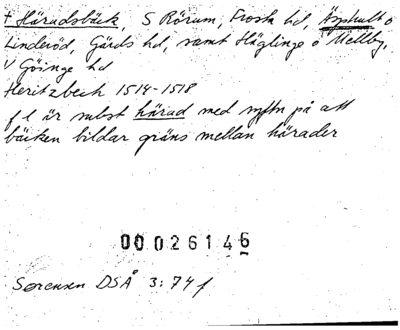 † Häradsbäck, S Rörum, Frosta hd, Äsphult o
Linderöd, Gärds hd, samt Häglinge o Mellby,
V Göinge hd
Heritzbech 1514-1518
f l är subst härad med syftn på att
bäcken bildar gräns mellan härader
00026146
Sørensen DSÅ 3:74 f